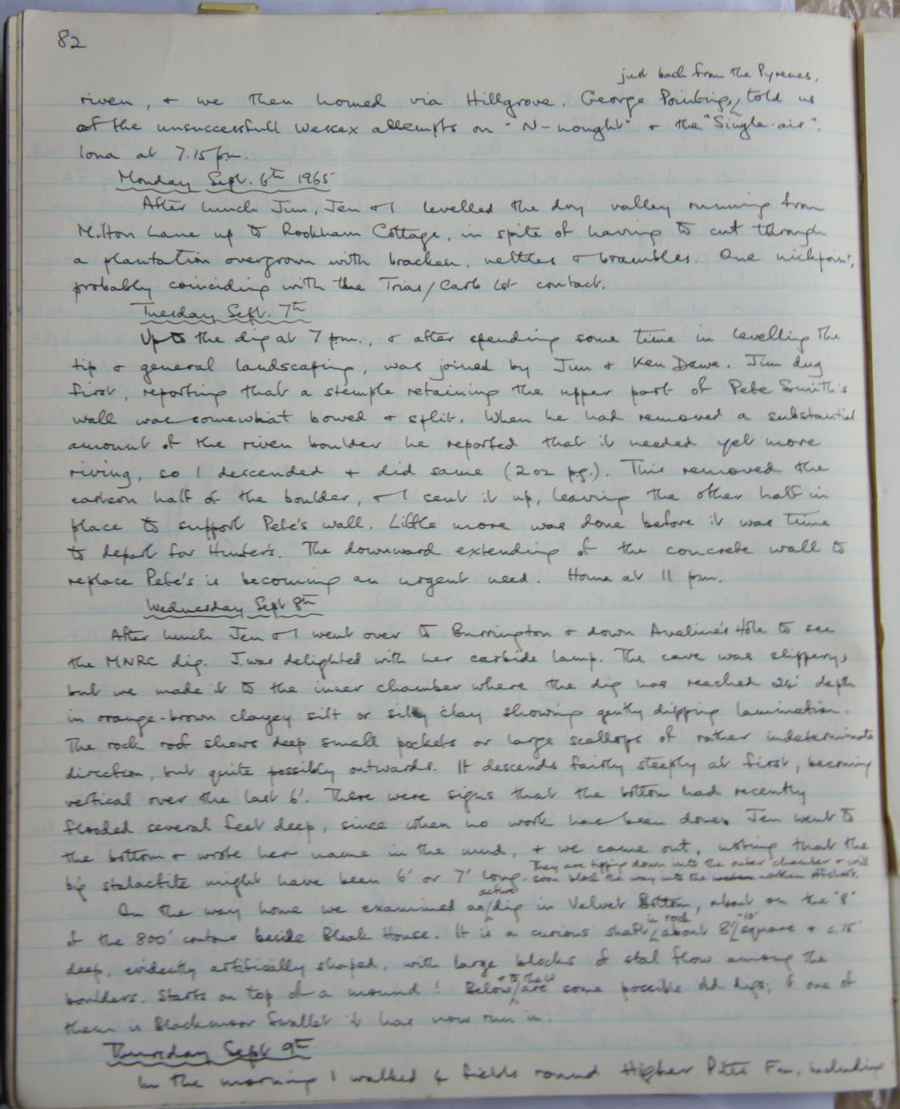 82
just back from the Pyrenees,
riven, & we then homed via Hillgrove. George Pointing, told us
of the unsuccessfull Wessex attempts on "N-nought" & the "Single-air".
at 7.15 pm.
Monday Sept. 6th 1965
After lunch Jim, Jen & I levelled the dry valley running from
Milton Lane up to Rookham Cottage, in spite of having to cut through
a plantation overgrown with bracken, nettles & brambles. One nickpoint,
probably coinciding with the Trias/Carb Lst contact.
Tuesday Sept. 7th
Up to the dig at 7 pm., & after spending some time in levelling the
tip & general landscaping, was joined by Jim & Ken Dawe. Jim dug
first, reporting that a stemple retaining the upper part of Pete Smith's
wall was somewhat bowed & split. When he had removed a substantial
amount of the riven boulder he reported that it needed yet more
riving, so I descended & did same (2 oz pg.). This removed the
half of the boulder, & I sent it up, leaving the other half in
place to support Pete's wall. Little more was done before it was time
to depart for Hunter's. The downward extending of the concrete wall to
replace Pete's is becoming an urgent need. Home at 11 pm.
Wednesday Sept 8th
After lunch Jen & I went over to Burrington & down Aveline's Hole to see
the MNRC dig. J. was delighted with her carbide lamp. The cave was slippery,
but we made it to the inner chamber where the dig has reached 25' depth
in orange-brown clayey silt or silty clay showing gently dipping lamination.
The rock roof shows deep small pockets or large scallops of rather indeterminate
direction, but quite possibly outwards. It descends fairly steeply at first, becoming
vertical over the last 6'. There were signs that the bottom had recently
flooded several feet deep, since when no work has been done. Jen went to
the bottom & wrote her name in the mud, & we came out, noting that the
They are tipping down into the outer chamber & will
big stalactite might have been 6' or 7' long. soon block the way into the
active
On the way home we examined an dig in Velvet Bottom, about on the "8"
in rock "10'
of the 800' contour beside Black House. It is a curious shaft about 8' square & c.15'
deep, evidently artificially shaped, with large blocks of stal flow among the
& to the W
boulders. Starts on top of a mound! Below are some possible old digs; if one of
them is Blackmoor Swallet it has now run in.
Thursday Sept 9th
In the morning I walked 4 fields round Higher Pitts Fm., including